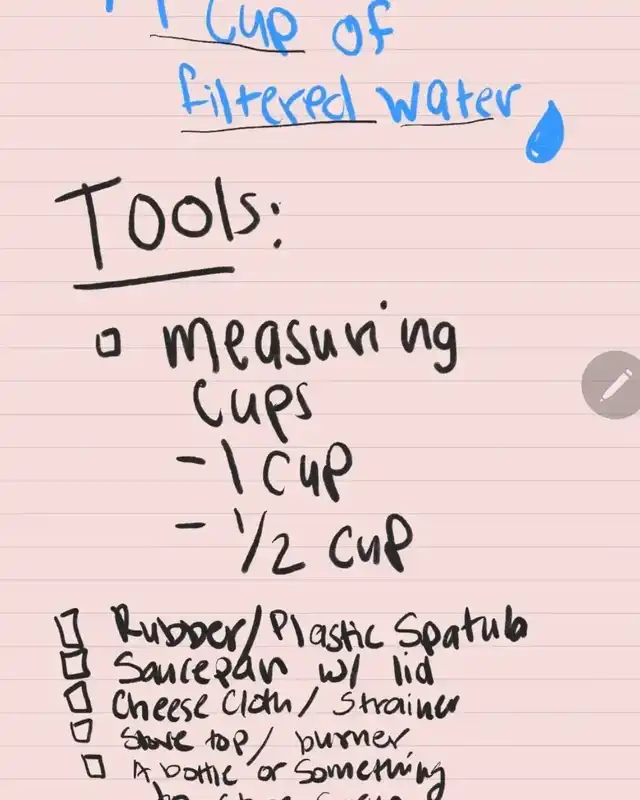 1 Cup of
filtered water
Tools:
measuring
cups
- 1 cup
- 1/2 cup
Rubber/Plastic Spatula
Saucepan w/ lid
Cheese Cloth/ Strainer
Stove top/ burner
A bottle or Something
to